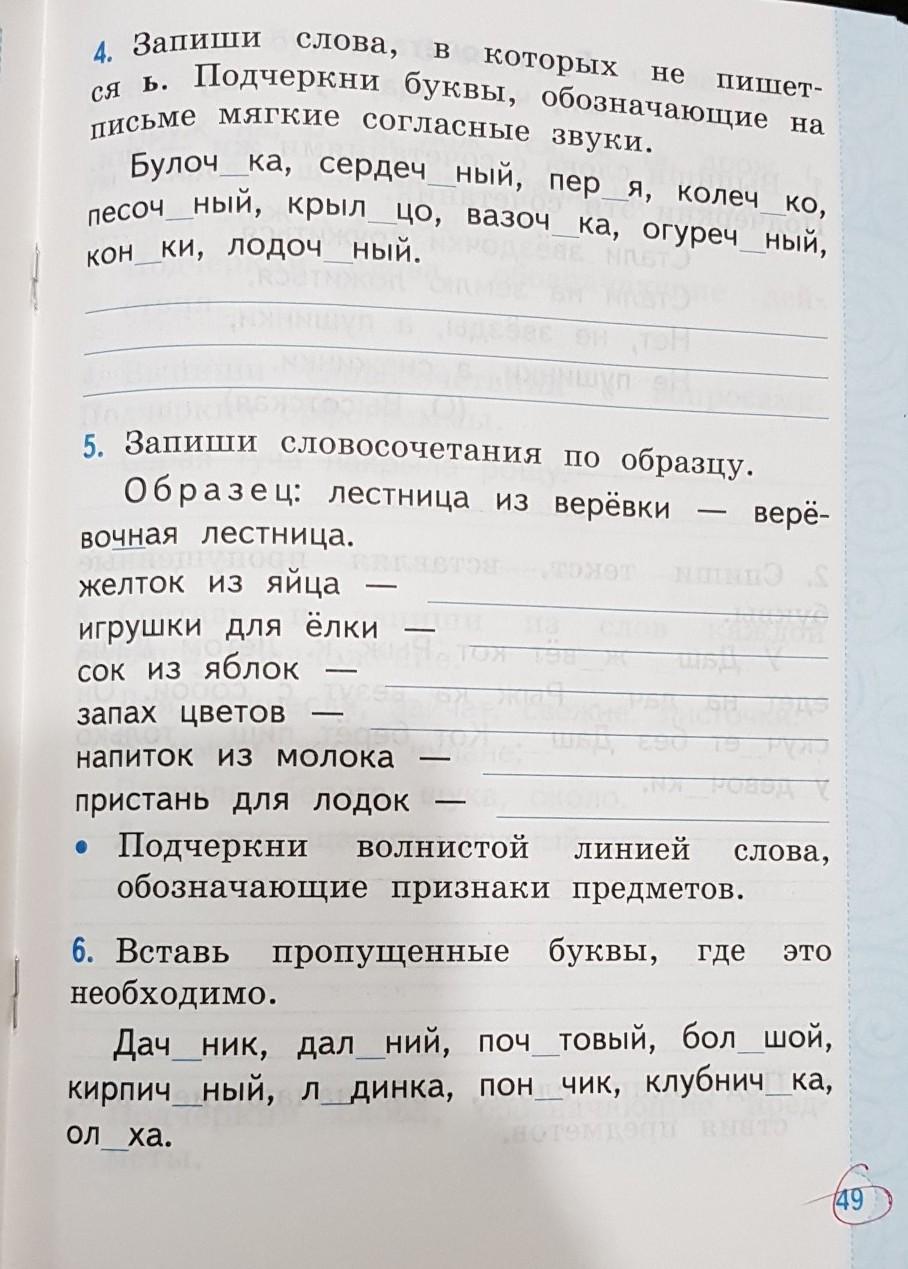 4. Запиши слова, в которых не пишет-
ся ь. Подчеркни буквы, обозначающие на
письме мягкие согласные звуки.
Булоч_ка, сердеч_ный, пер_я, колеч_ко,
песоч_ный, крыл_цо, вазоч_ка, огуреч_ный,
кон_ки, лодоч_ный.
5. Запиши словосочетания по образцу.
Образец: лестница из верёвки — верё-
вочная лестница.
желток из яйца —
игрушки для ёлки —
сок из яблок —
запах цветов —
напиток из молока —
пристань для лодок —
• Подчеркни волнистой линией слова,
обозначающие признаки предметов.
6. Вставь пропущенные буквы, где это
необходимо.
Дач_ник, дал_ний, поч_товый, бол_шой,
кирпич_ный, л_динка, пон_чик, клубнич_ка,
ол_ха.
49